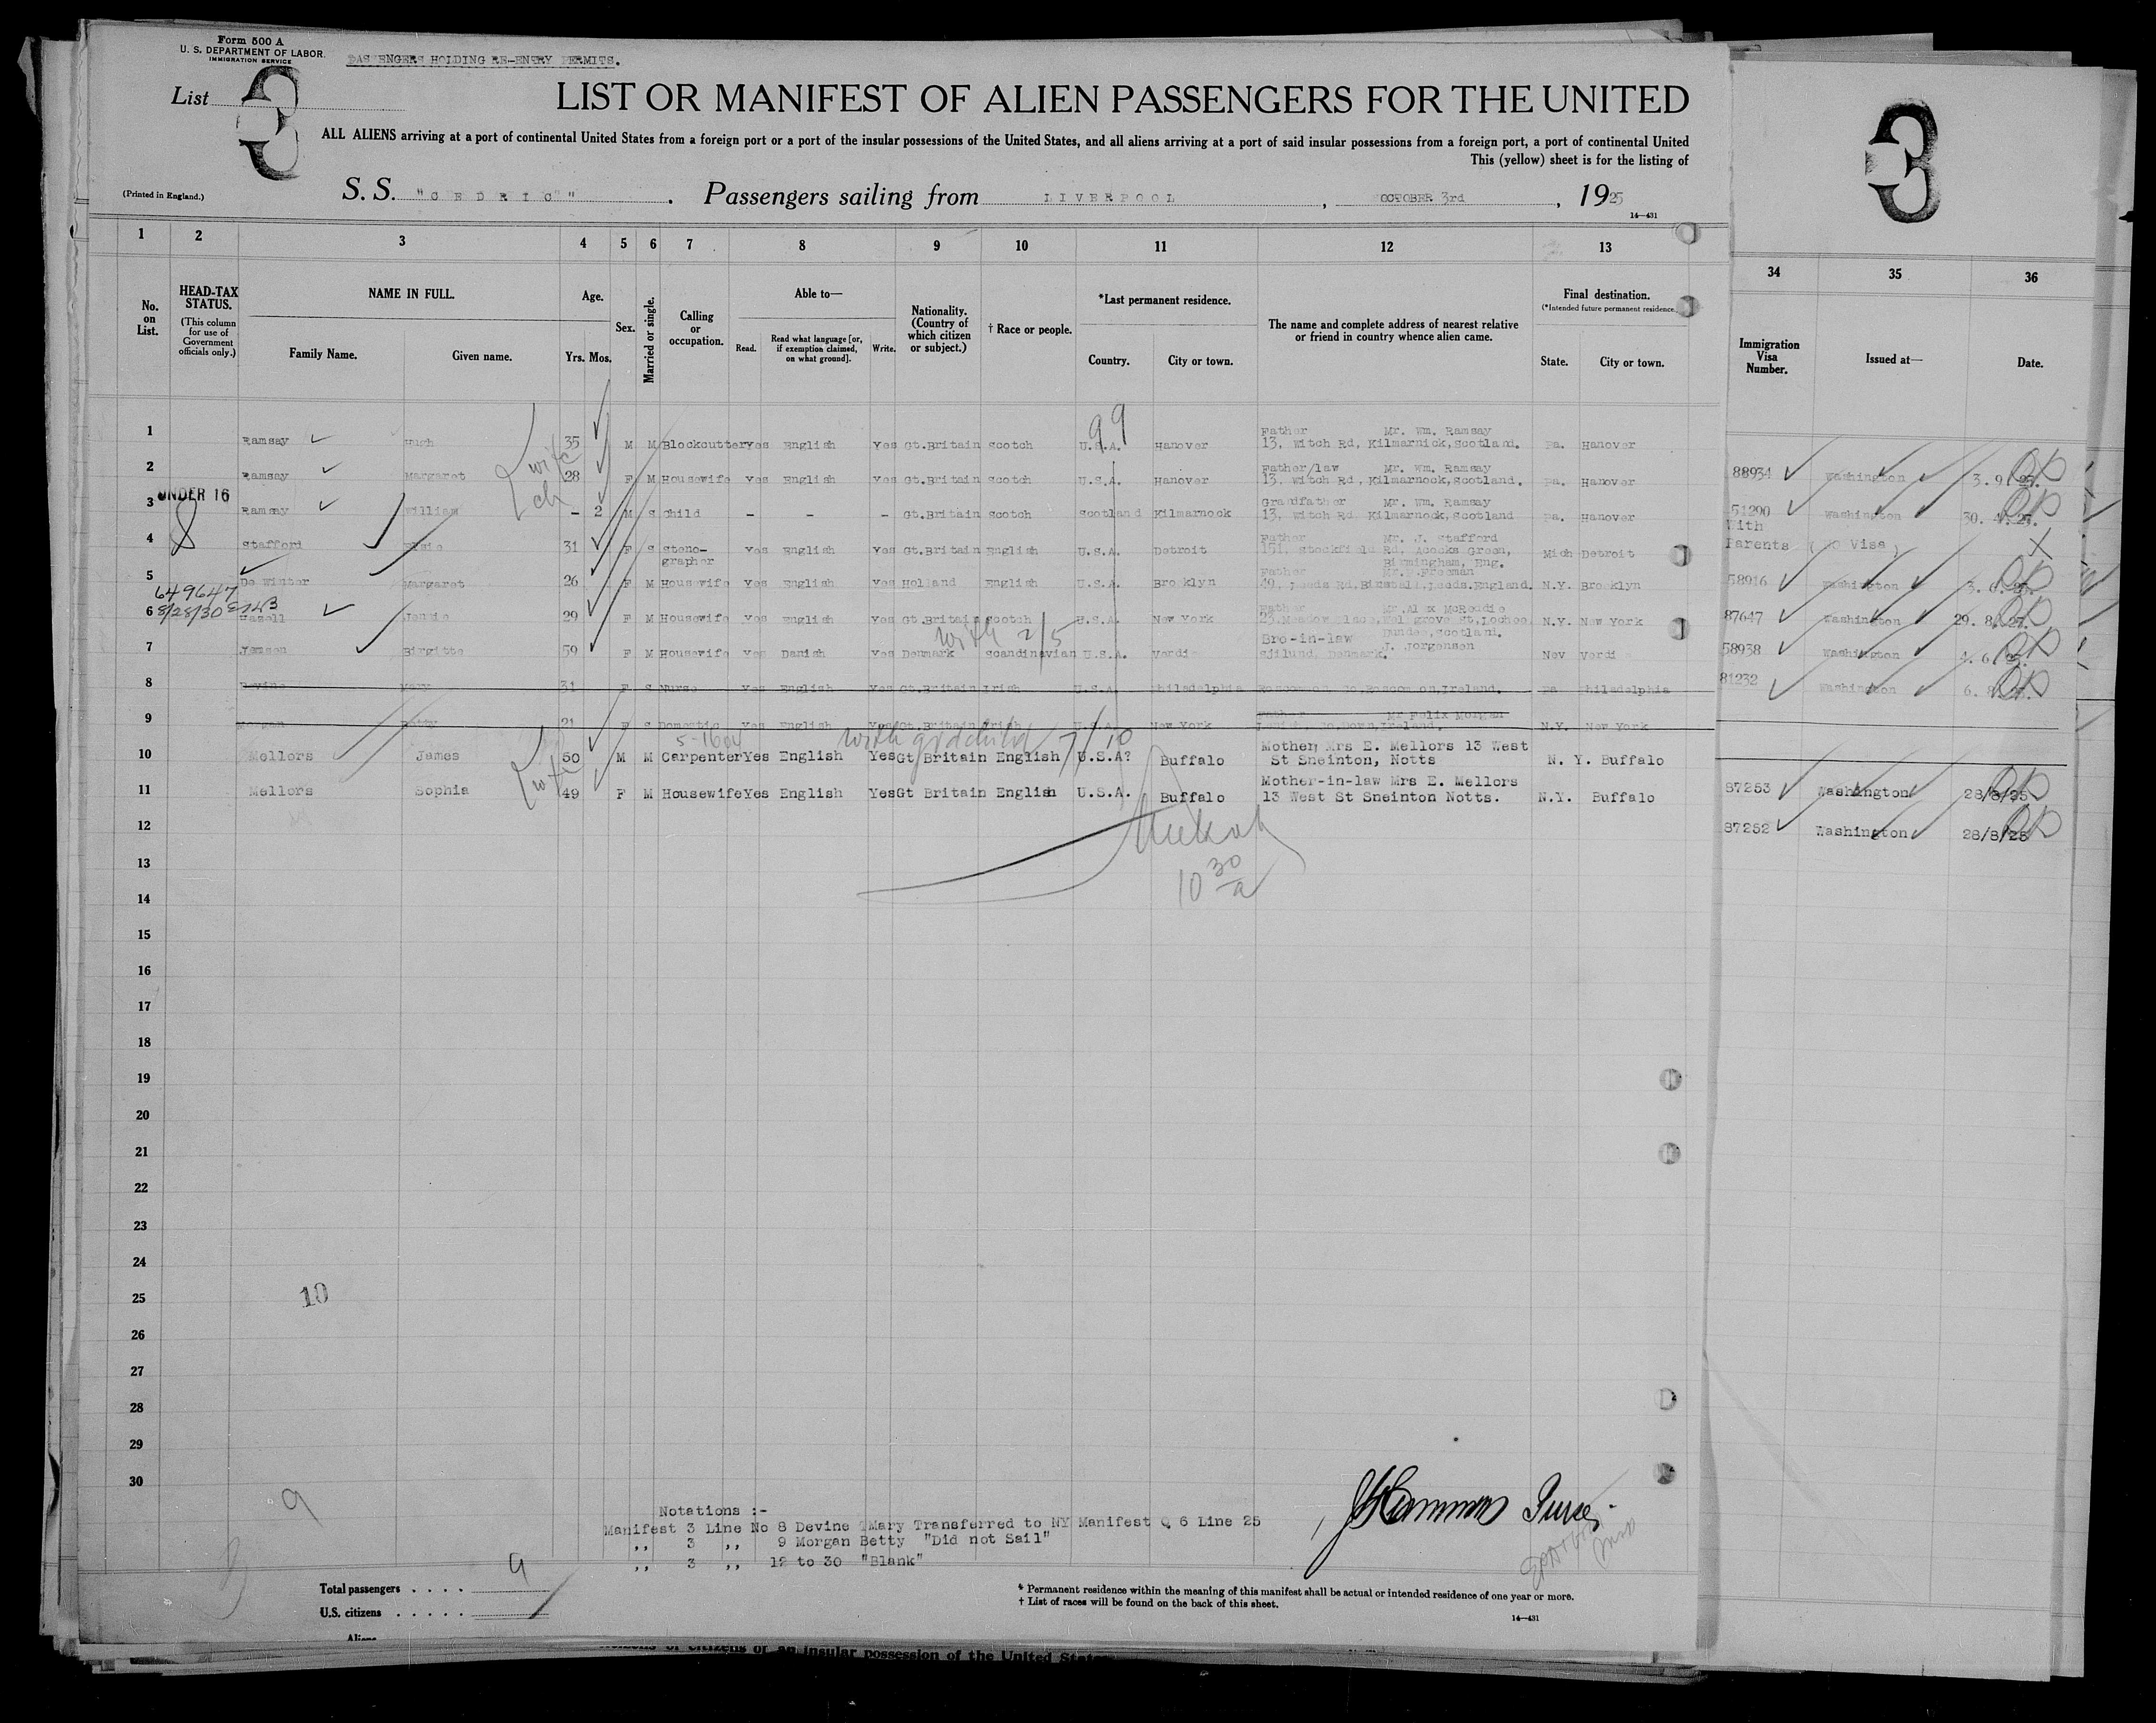 Form 500 A
U. S. DEPARTMENT OF LABOR
IMMIGRATION SERVICE
PASSENGERS HOLDING RE-ENTRY PERMITS.
List 3
LIST OR MANIFEST OF ALIEN PASSENGERS FOR THE UNITED
ALL ALIENS arriving at a port of continental United States from a foreign port or a port of the insular possessions of the United States, and all aliens arriving at a port of said insular possessions from a foreign port, a port of continental United
This (yellow) sheet is for the listing of
(Printed in England.)
S. S. "CEDRIC" . Passengers sailing from LIVERPOOL, OCTOBER 3rd, 1925
14—431
3
1 2 3 4 5 6 7 8 9 10 11 12 13 34 35 36
No. on List.
HEAD-TAX STATUS.
(This column for use of Government officials only.)
NAME IN FULL.
Family Name. Given name.
Age.
Yrs. Mos.
Sex.
Married or single.
Calling or occupation.
Able to—
Read. Read what language [or, if exemption claimed, on what ground]. Write.
Nationality. (Country of which citizen or subject.)
† Race or people.
*Last permanent residence.
Country. City or town.
The name and complete address of nearest relative or friend in country whence alien came.
Final destination.
(*Intended future permanent residence.)
State. City or town.
Immigration Visa Number.
Issued at—
Date.
99
1 Ramsay Hugh 35 M M Blockcutter Yes English Yes Gt.Britain Scotch U.S.A. Hanover Father Mr. Wm. Ramsay 13, Witch Rd, Kilmarnick, Scotland. Pa. Hanover
wife
2 Ramsay Margaret 28 F M Housewife Yes English Yes Gt.Britain Scotch U.S.A. Hanover Father/law Mr. Wm. Ramsay 13, Witch Rd, Kilmarnock, Scotland. Pa. Hanover
88934 Washington 3. 9. 25.
UNDER 16
ch
3 Ramsay William - 2 M S Child - - - Gt.Britain Scotch Scotland Kilmarnock Grandfather Mr. Wm. Ramsay 13, Witch Rd Kilmarnock, Scotland Pa. Hanover
51290 Washington 30. 4. 25.
4 Stafford Elsie 31 F S Steno-grapher Yes English Yes Gt.Britain English U.S.A. Detroit Father Mr. J. Stafford 151, Stockfield Rd, Acocks Green, Birmingham, Eng. Mich Detroit
With Parents (No Visa)
5 De Winter Margaret 26 F M Housewife Yes English Yes Holland English U.S.A. Brooklyn Father Freeman 49, Leeds Rd, Leeds, England. N.Y. Brooklyn
58916 Washington 3. 6. 25.
649647
8/28/30
6 Hazell Jennie 29 F M Housewife Yes English Yes Gt.Britain Scotch U.S.A. New York Father Mr. Alex McReddie 23, Meadow Place, St, Lochee Dundee, Scotland. N.Y. New York
87647 Washington 29. 8. 25.
with 2/5
7 Jensen Birgitte 59 F M Housewife Yes Danish Yes Denmark Scandinavian U.S.A. Verdi Bro-in-law J. Jorgensen Sjilund, Denmark. Nev Verdi
58938 Washington 4. 6. 25.
8 Devine Mary 31 F S Nurse Yes English Yes Gt.Britain Irish U.S.A. Philadelphia Ireland. Pa Philadelphia
81232 Washington 6. 8. 25.
9 Morgan Betty 21 F S Domestic Yes English Yes Gt.Britain Irish U.S.A. New York Father Mr Felix Morgan Ireland. N.Y. New York
with grdchild 7/10
10 Mellors James 50 M M Carpenter Yes English Yes Gt Britain English U.S.A? Buffalo Mother, Mrs E. Mellors 13 West St Sneinton, Notts N. Y. Buffalo
wife
11 Mellors Sophia 49 F M Housewife Yes English Yes Gt Britain English U.S.A. Buffalo Mother-in-law Mrs E. Mellors 13 West St Sneinton Notts. N.Y. Buffalo
87253 Washington 28/8/25
12
87252 Washington 28/8/25
13
10 30/a
14
15
16
17
18
19
20
21
22
23
24
25
10
26
27
28
29
30
9
Notations :-
Manifest 3 Line No 8 Devine Mary Transferred to NY Manifest Q 6 Line 25
,, 3 ,, 9 Morgan Betty "Did not Sail"
,, 3 ,, 12 to 30 "Blank"
Purser
Total passengers . . . . 9
U.S. citizens . . . . .
Aliens
* Permanent residence within the meaning of this manifest shall be actual or intended residence of one year or more.
† List of races will be found on the back of this sheet.
14—431
citizens or citizens of an insular possession of the United States